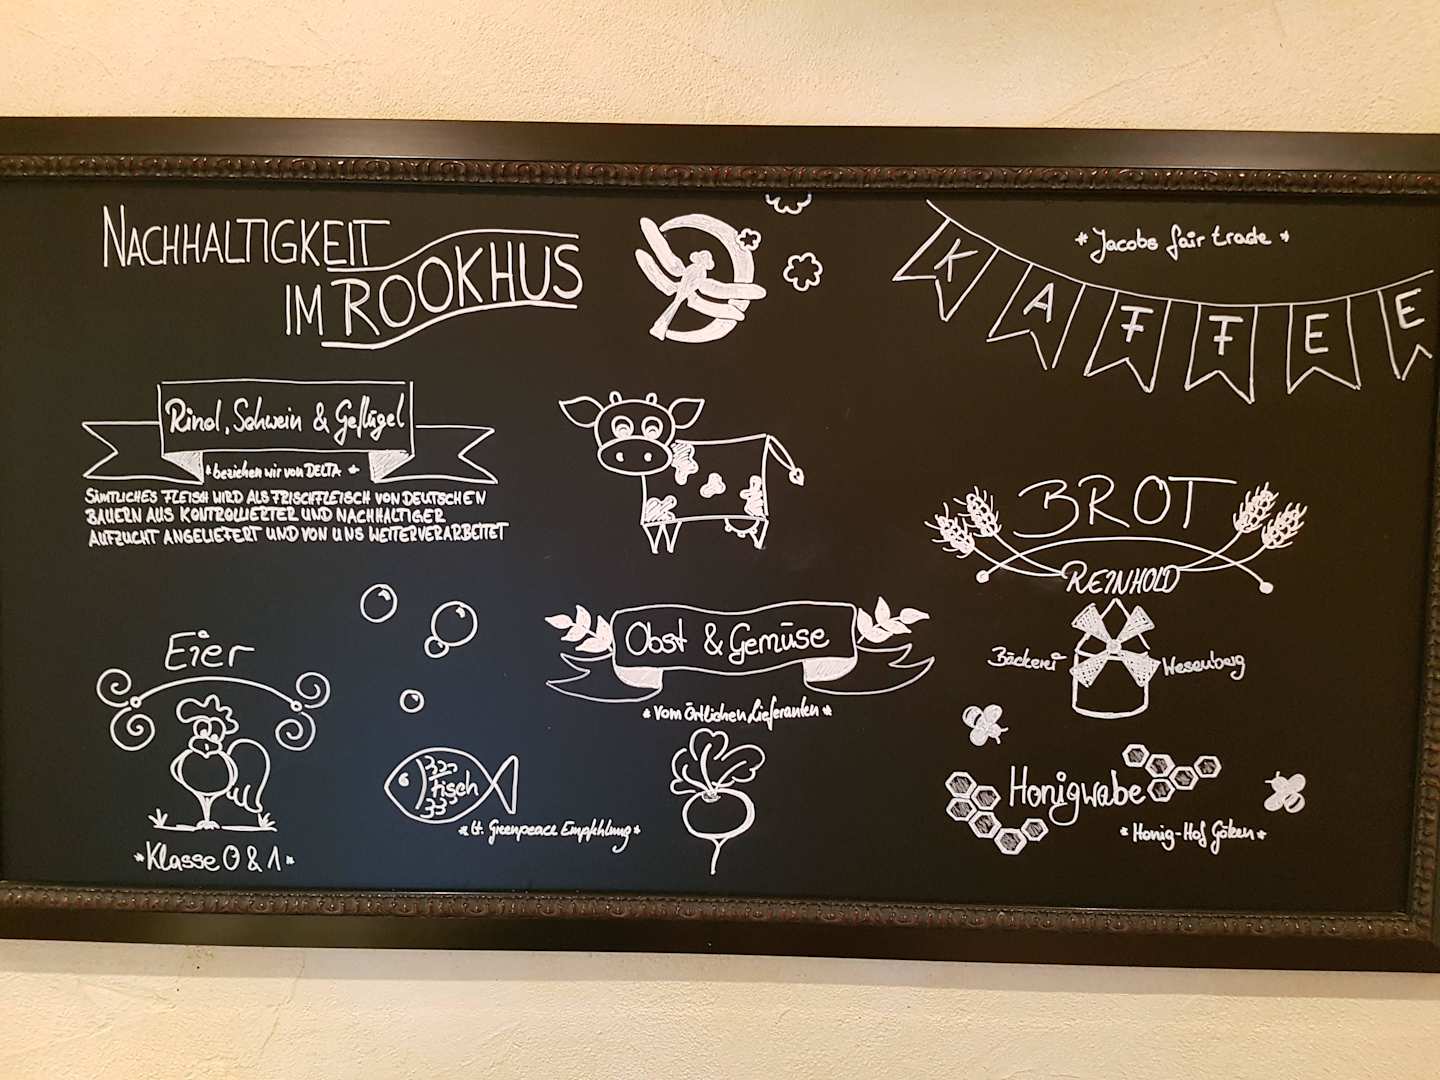 NACHHALTIGKEIT
IM ROOKHUS
* Jacobs fair trade *
KAFFEE
Rind, Schwein & Geflügel
* beziehen wir von DELTA *
SÄMTLICHES FLEISCH WIRD ALS FRISCHFLEISCH VON DEUTSCHEN
BAUERN AUS KONTROLLIERTER UND NACHHALTIGER
AUFZUCHT ANGELIEFERT UND VON UNS WEITERVERARBEITET
BROT
REINHOLD
Bäckerei Wesenberg
Eier
*Klasse 0 & 1*
Fisch
*lt. Greenpeace Empfehlung*
Obst & Gemüse
* vom örtlichen Lieferanten *
Honigwabe
* Honig-Hof Göken *